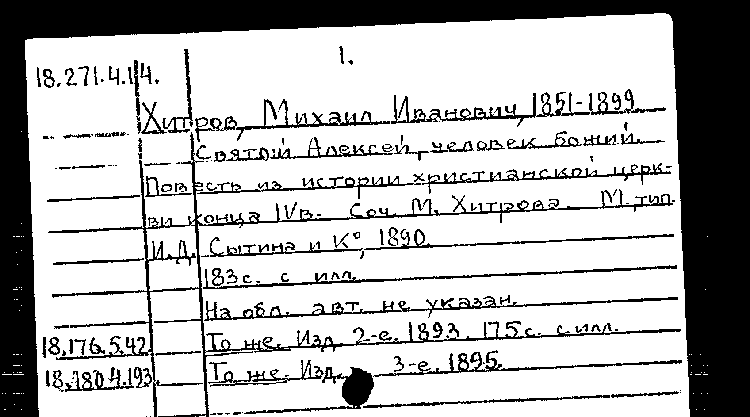 1.
18.271.4.14.
Хитров, Михаил Иванович, 1851-1899
Святой Алексей, человек божий.
Повесть из истории христианской церк-
ви конца IVв. Соч. М. Хитрова. М., тип.
И.Д. Сытина и К°, 1890.
183 с. с илл.
На обл. авт. не указан.
18.176.5.42. То же. Изд. 2-е. 1893. 175 с. с илл.
18.180.4.193. То же. Изд. 3-е. 1895.